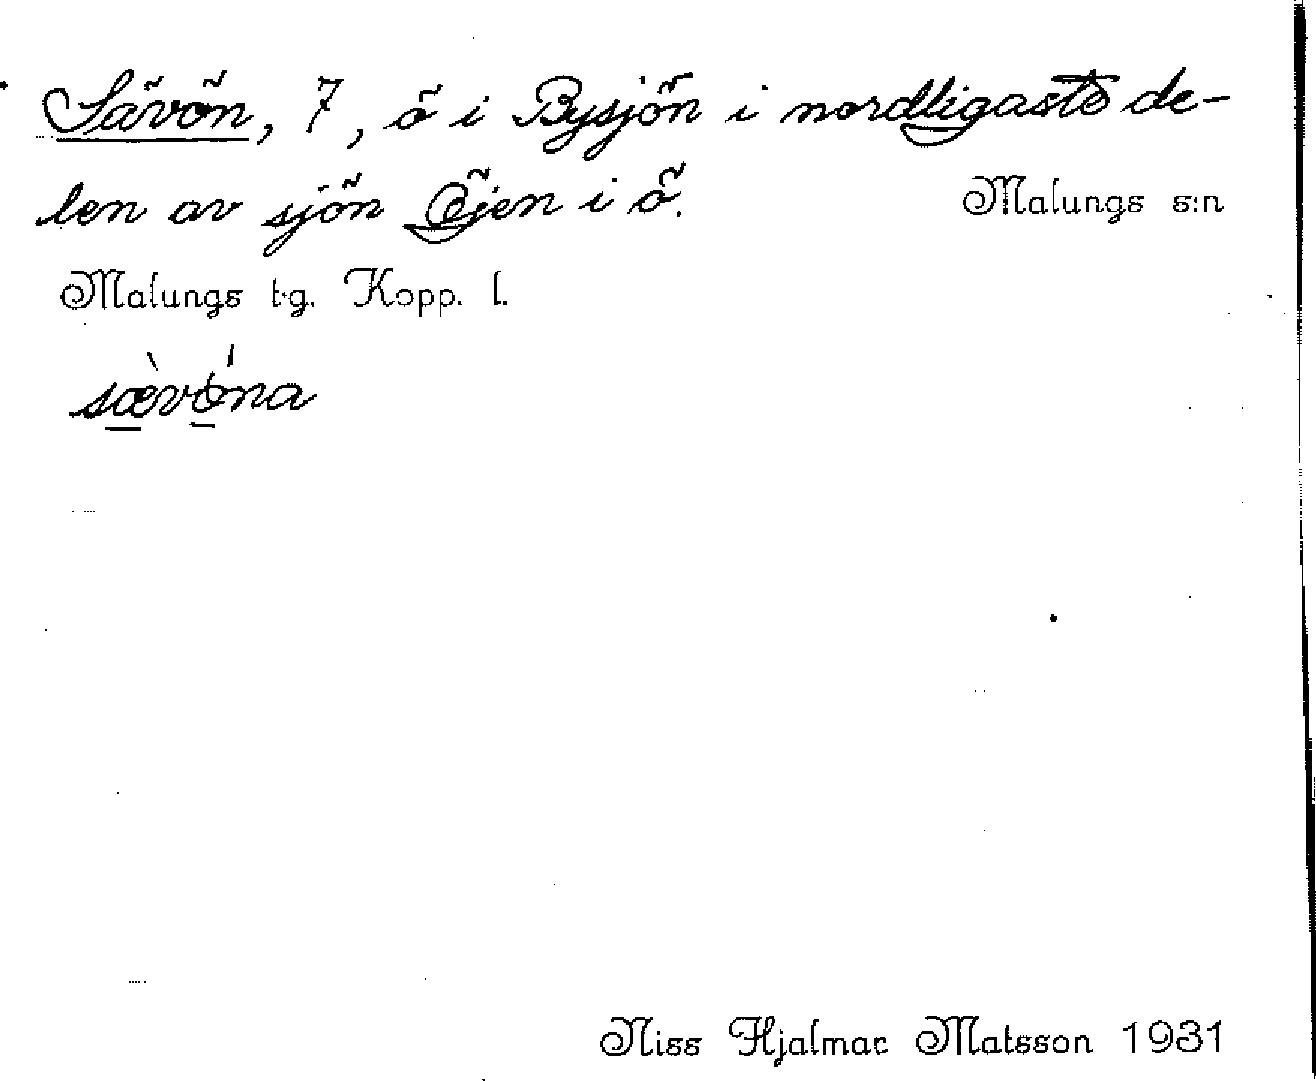 Sävön, 7, ö i Bysjön i nordligaste de-
len av sjön Öjen i ö.
Malungs s:n
Malungs tg. Kopp. l.
sævòna
Niss Hjalmar Matsson 1931